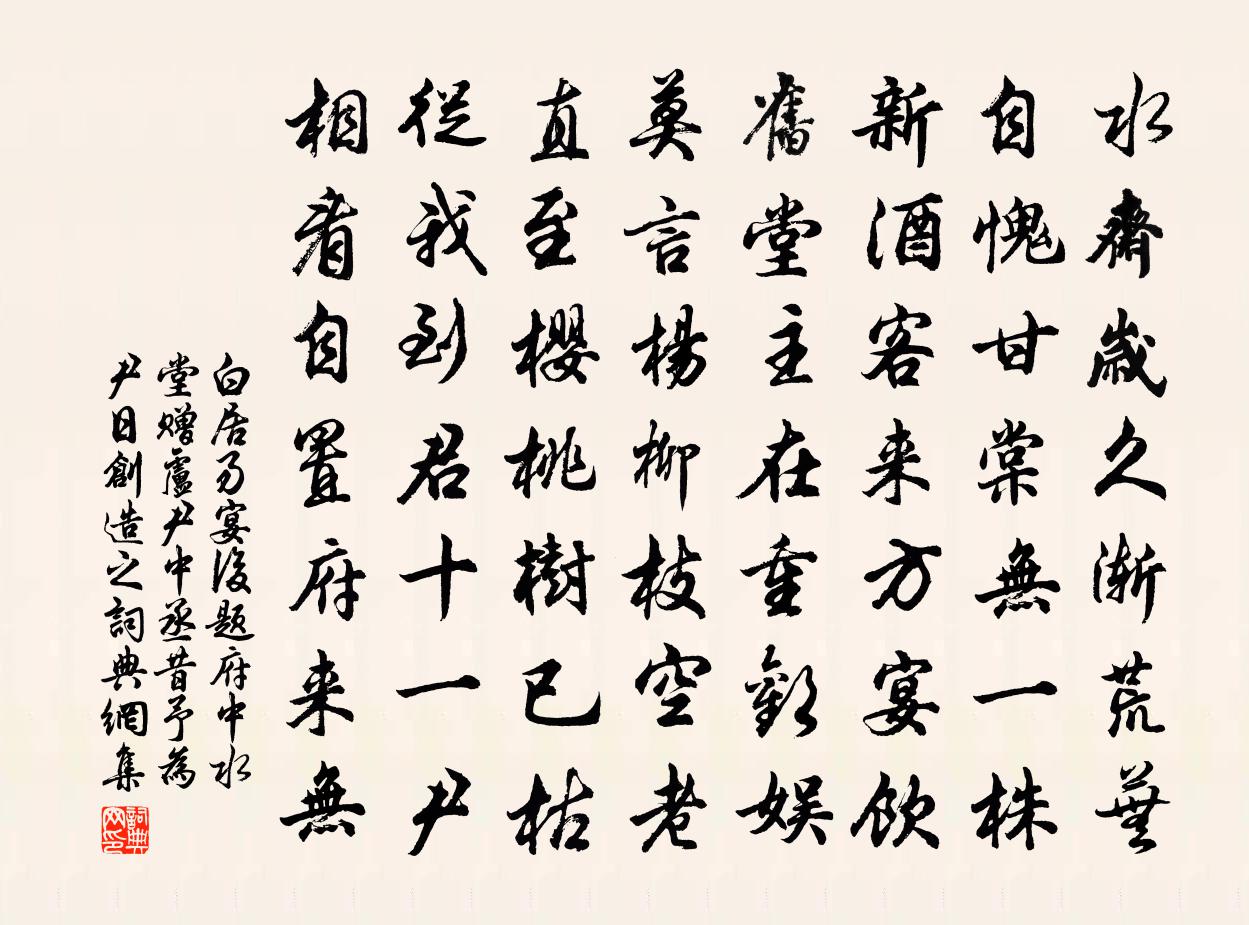 水齋歲久漸荒蕪
自愧甘棠無一株
新酒客来方宴飲
舊堂主在重歡娱
莫言楊柳枝空老
直至櫻桃樹已枯
從我到君十一尹
相看自置府来無
白居易宴後題府中水
堂贈盧尹中丞昔予為
尹日創造之詞典網集
詞典
网印